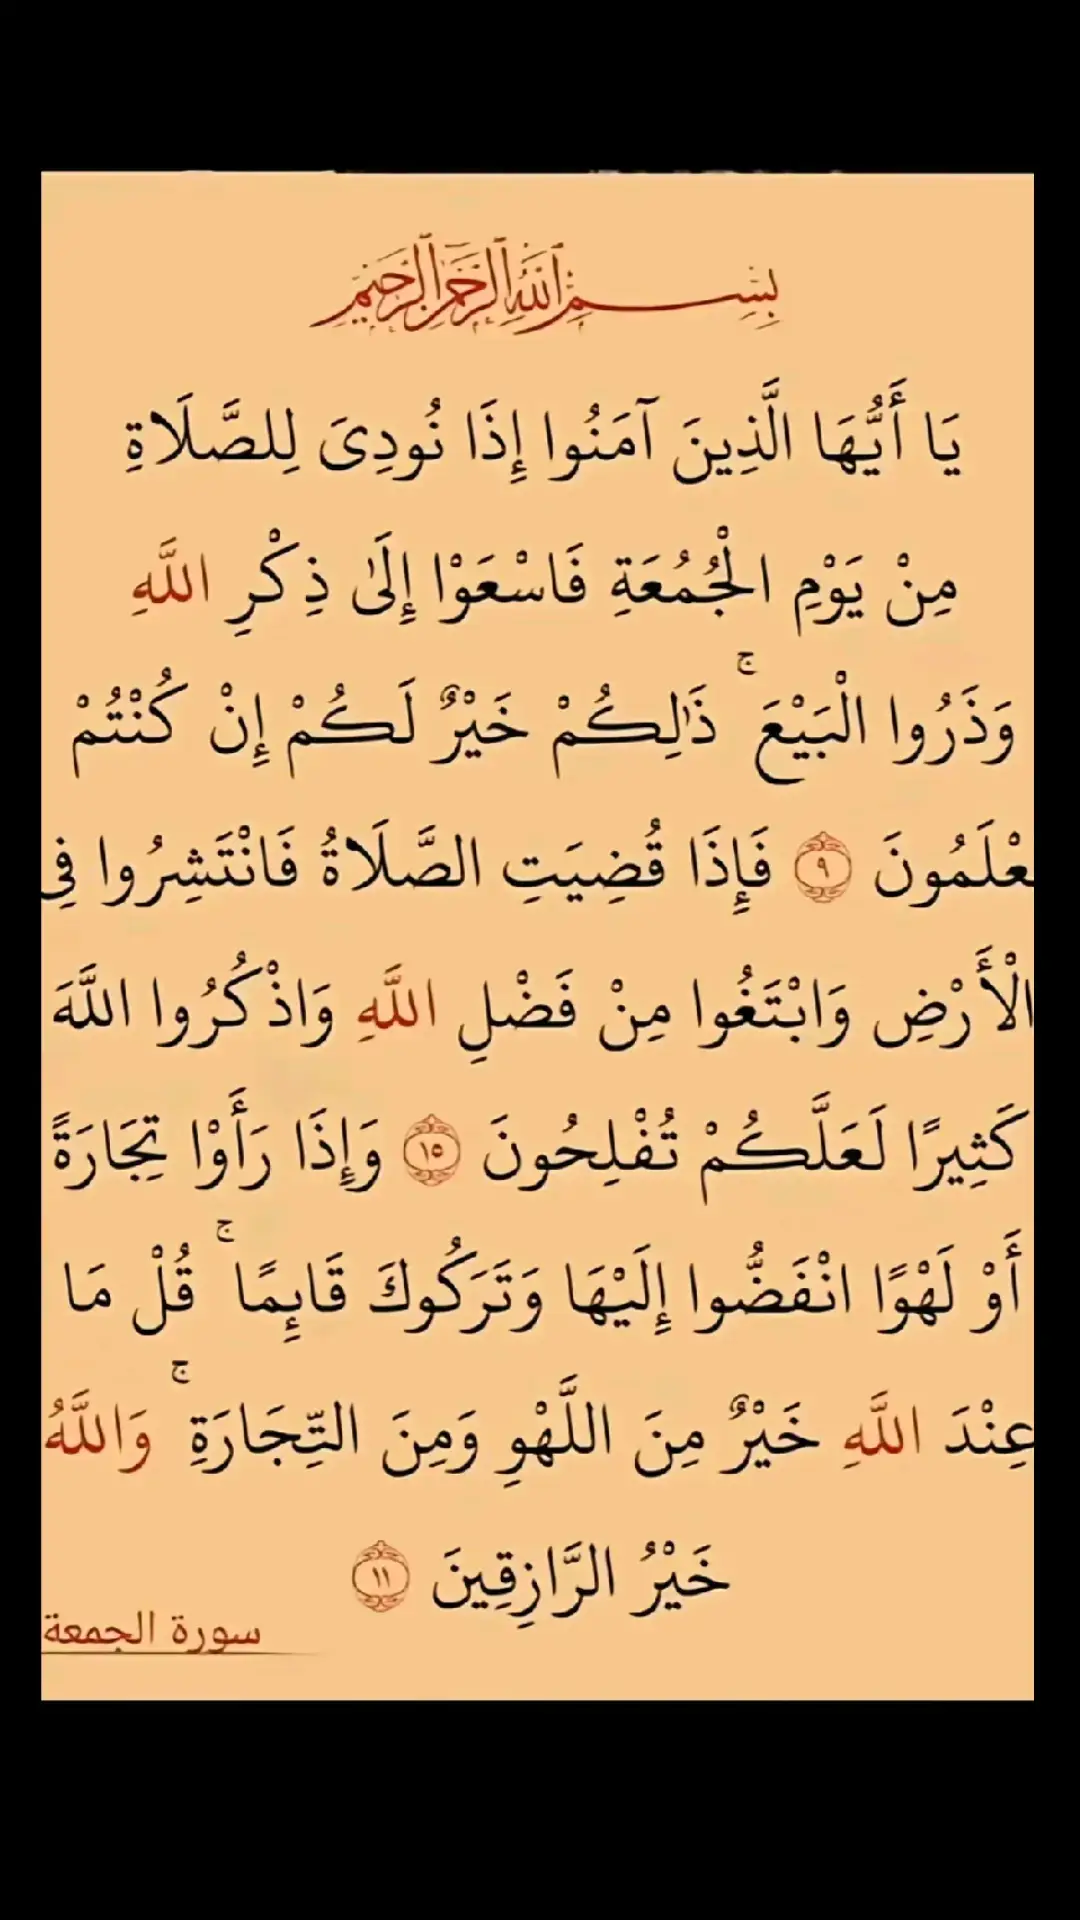 بِسْمِ اللَّهِ الرَّحْمَٰنِ الرَّحِيمِ
يَا أَيُّهَا الَّذِينَ آمَنُوا إِذَا نُودِىَ لِلصَّلَاةِ
مِنْ يَوْمِ الْجُمُعَةِ فَاسْعَوْا إِلَىٰ ذِكْرِ اللَّهِ
وَذَرُوا الْبَيْعَ ۚ ذَٰلِكُمْ خَيْرٌ لَكُمْ إِنْ كُنْتُمْ
عْلَمُونَ ٩ فَإِذَا قُضِيَتِ الصَّلَاةُ فَانْتَشِرُوا فِى
الْأَرْضِ وَابْتَغُوا مِنْ فَضْلِ اللَّهِ وَاذْكُرُوا اللَّهَ
كَثِيرًا لَعَلَّكُمْ تُفْلِحُونَ ١٥ وَإِذَا رَأَوْا تِجَارَةً
أَوْ لَهْوًا انْفَضُّوا إِلَيْهَا وَتَرَكُوكَ قَايِمًا ۚ قُلْ مَا
عِنْدَ اللَّهِ خَيْرٌ مِنَ اللَّهْوِ وَمِنَ التِّجَارَةِ ۚ وَاللَّهُ
خَيْرُ الرَّازِقِينَ ١١
سورة الجمعة